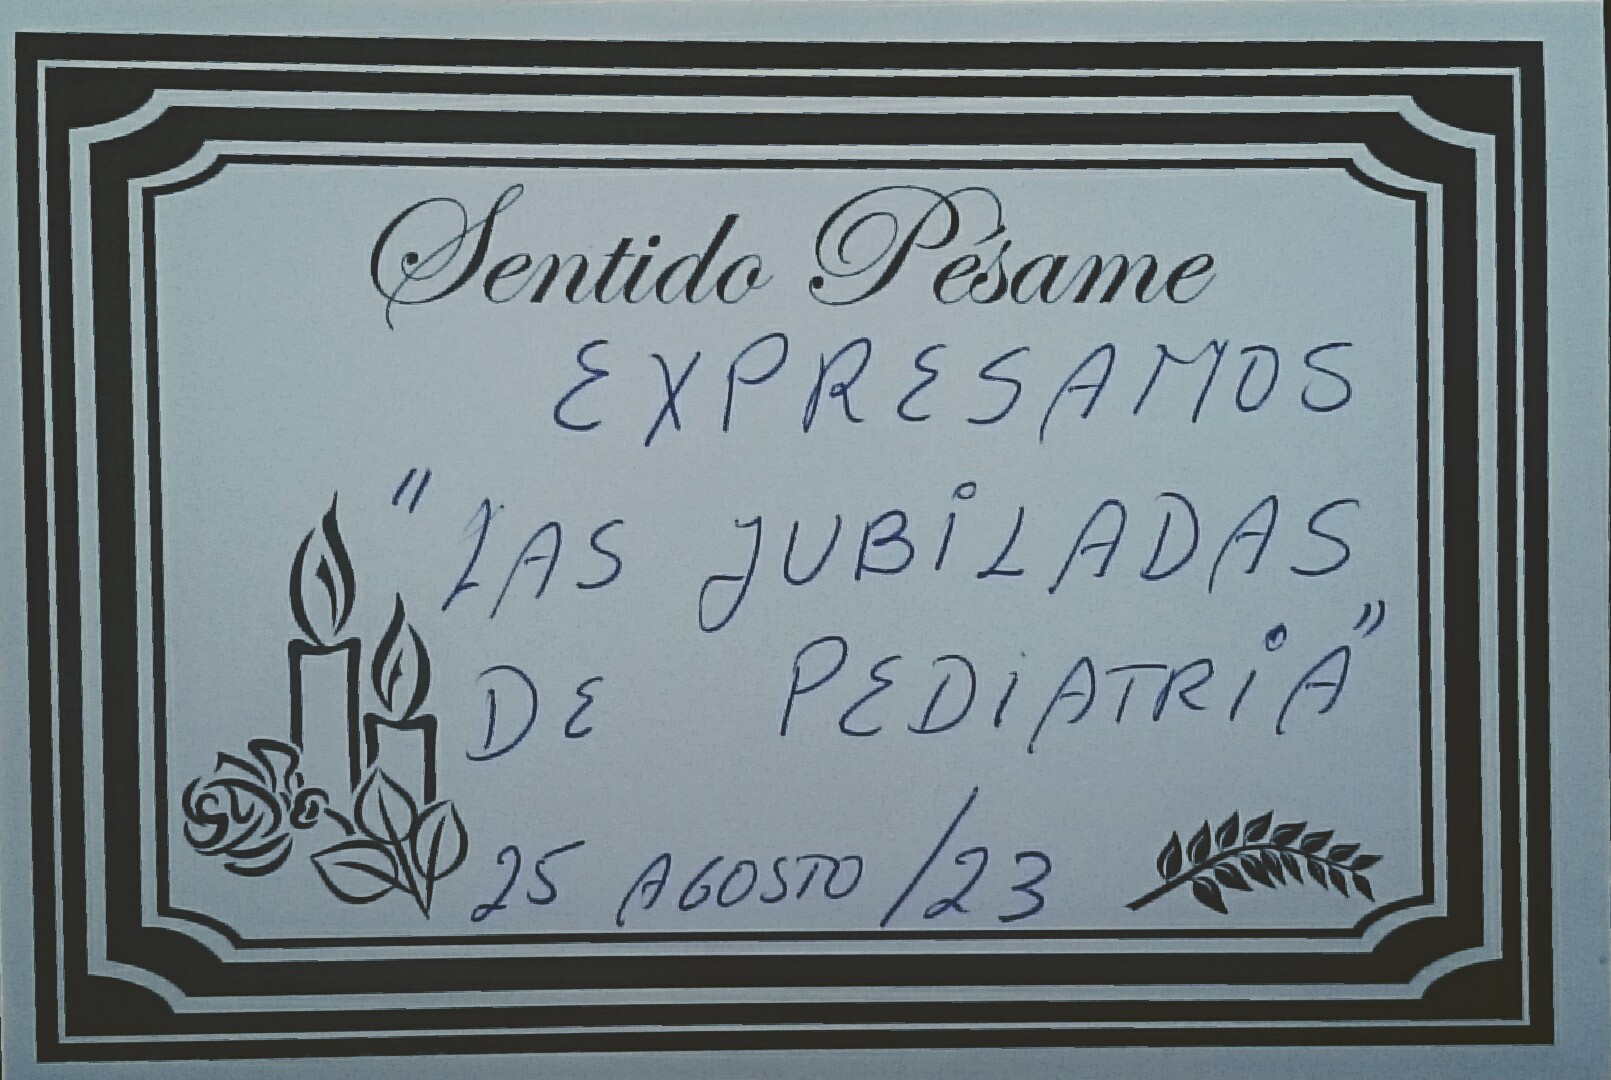 Sentido Pésame
EXPRESAMOS
"LAS JUBILADAS
DE PEDIATRIA"
25 AGOSTO/23